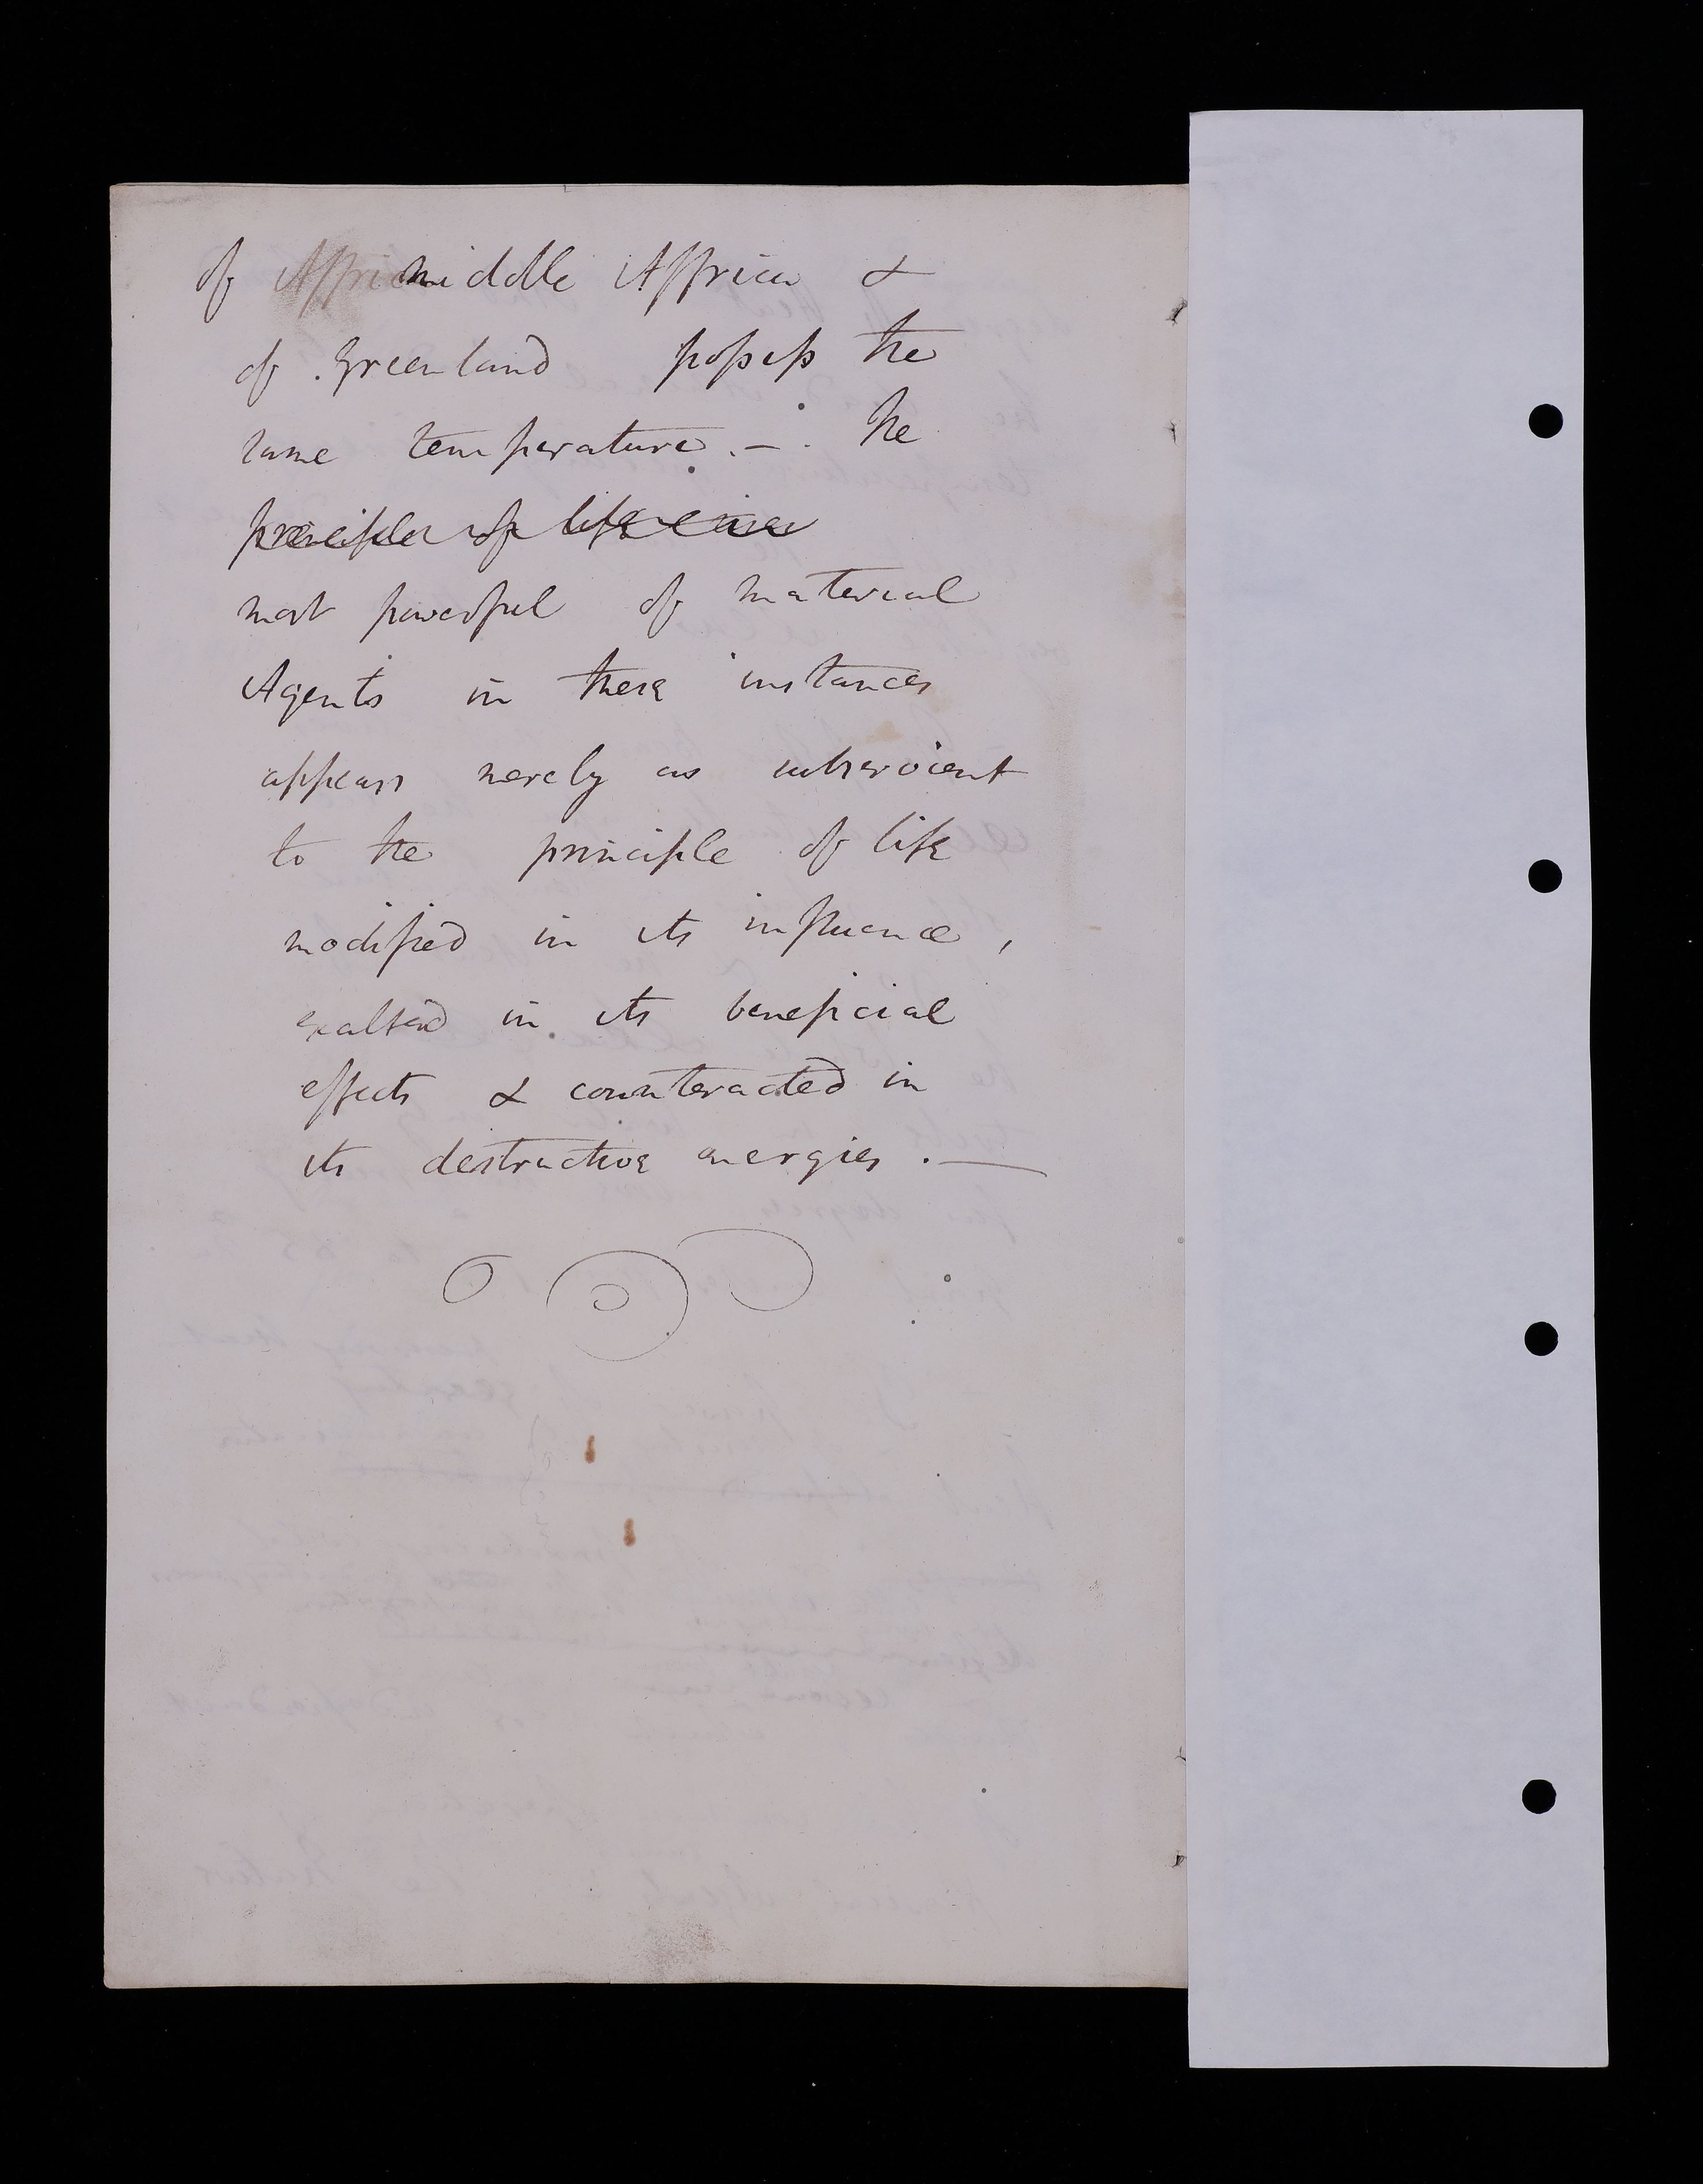 of Affric middle Affrica &
of Greenland possess the
same temperature. – . The
principle of life in
most powerful of material
Agents in these instances
appears merely as subservient
to the principle of life
modified in its influence ,
exalted in its beneficial
effects & counteracted in
its destructive energies . —